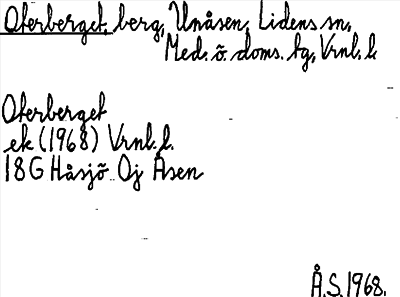 Oterberget, berg, Unåsen, Lidens sn,
Med. ö. doms. tg, Vrnl. l.
Oterberget
ek (1968) Vrnl. l.
18G Håsjö Oj Åsen
Å.S. 1968.